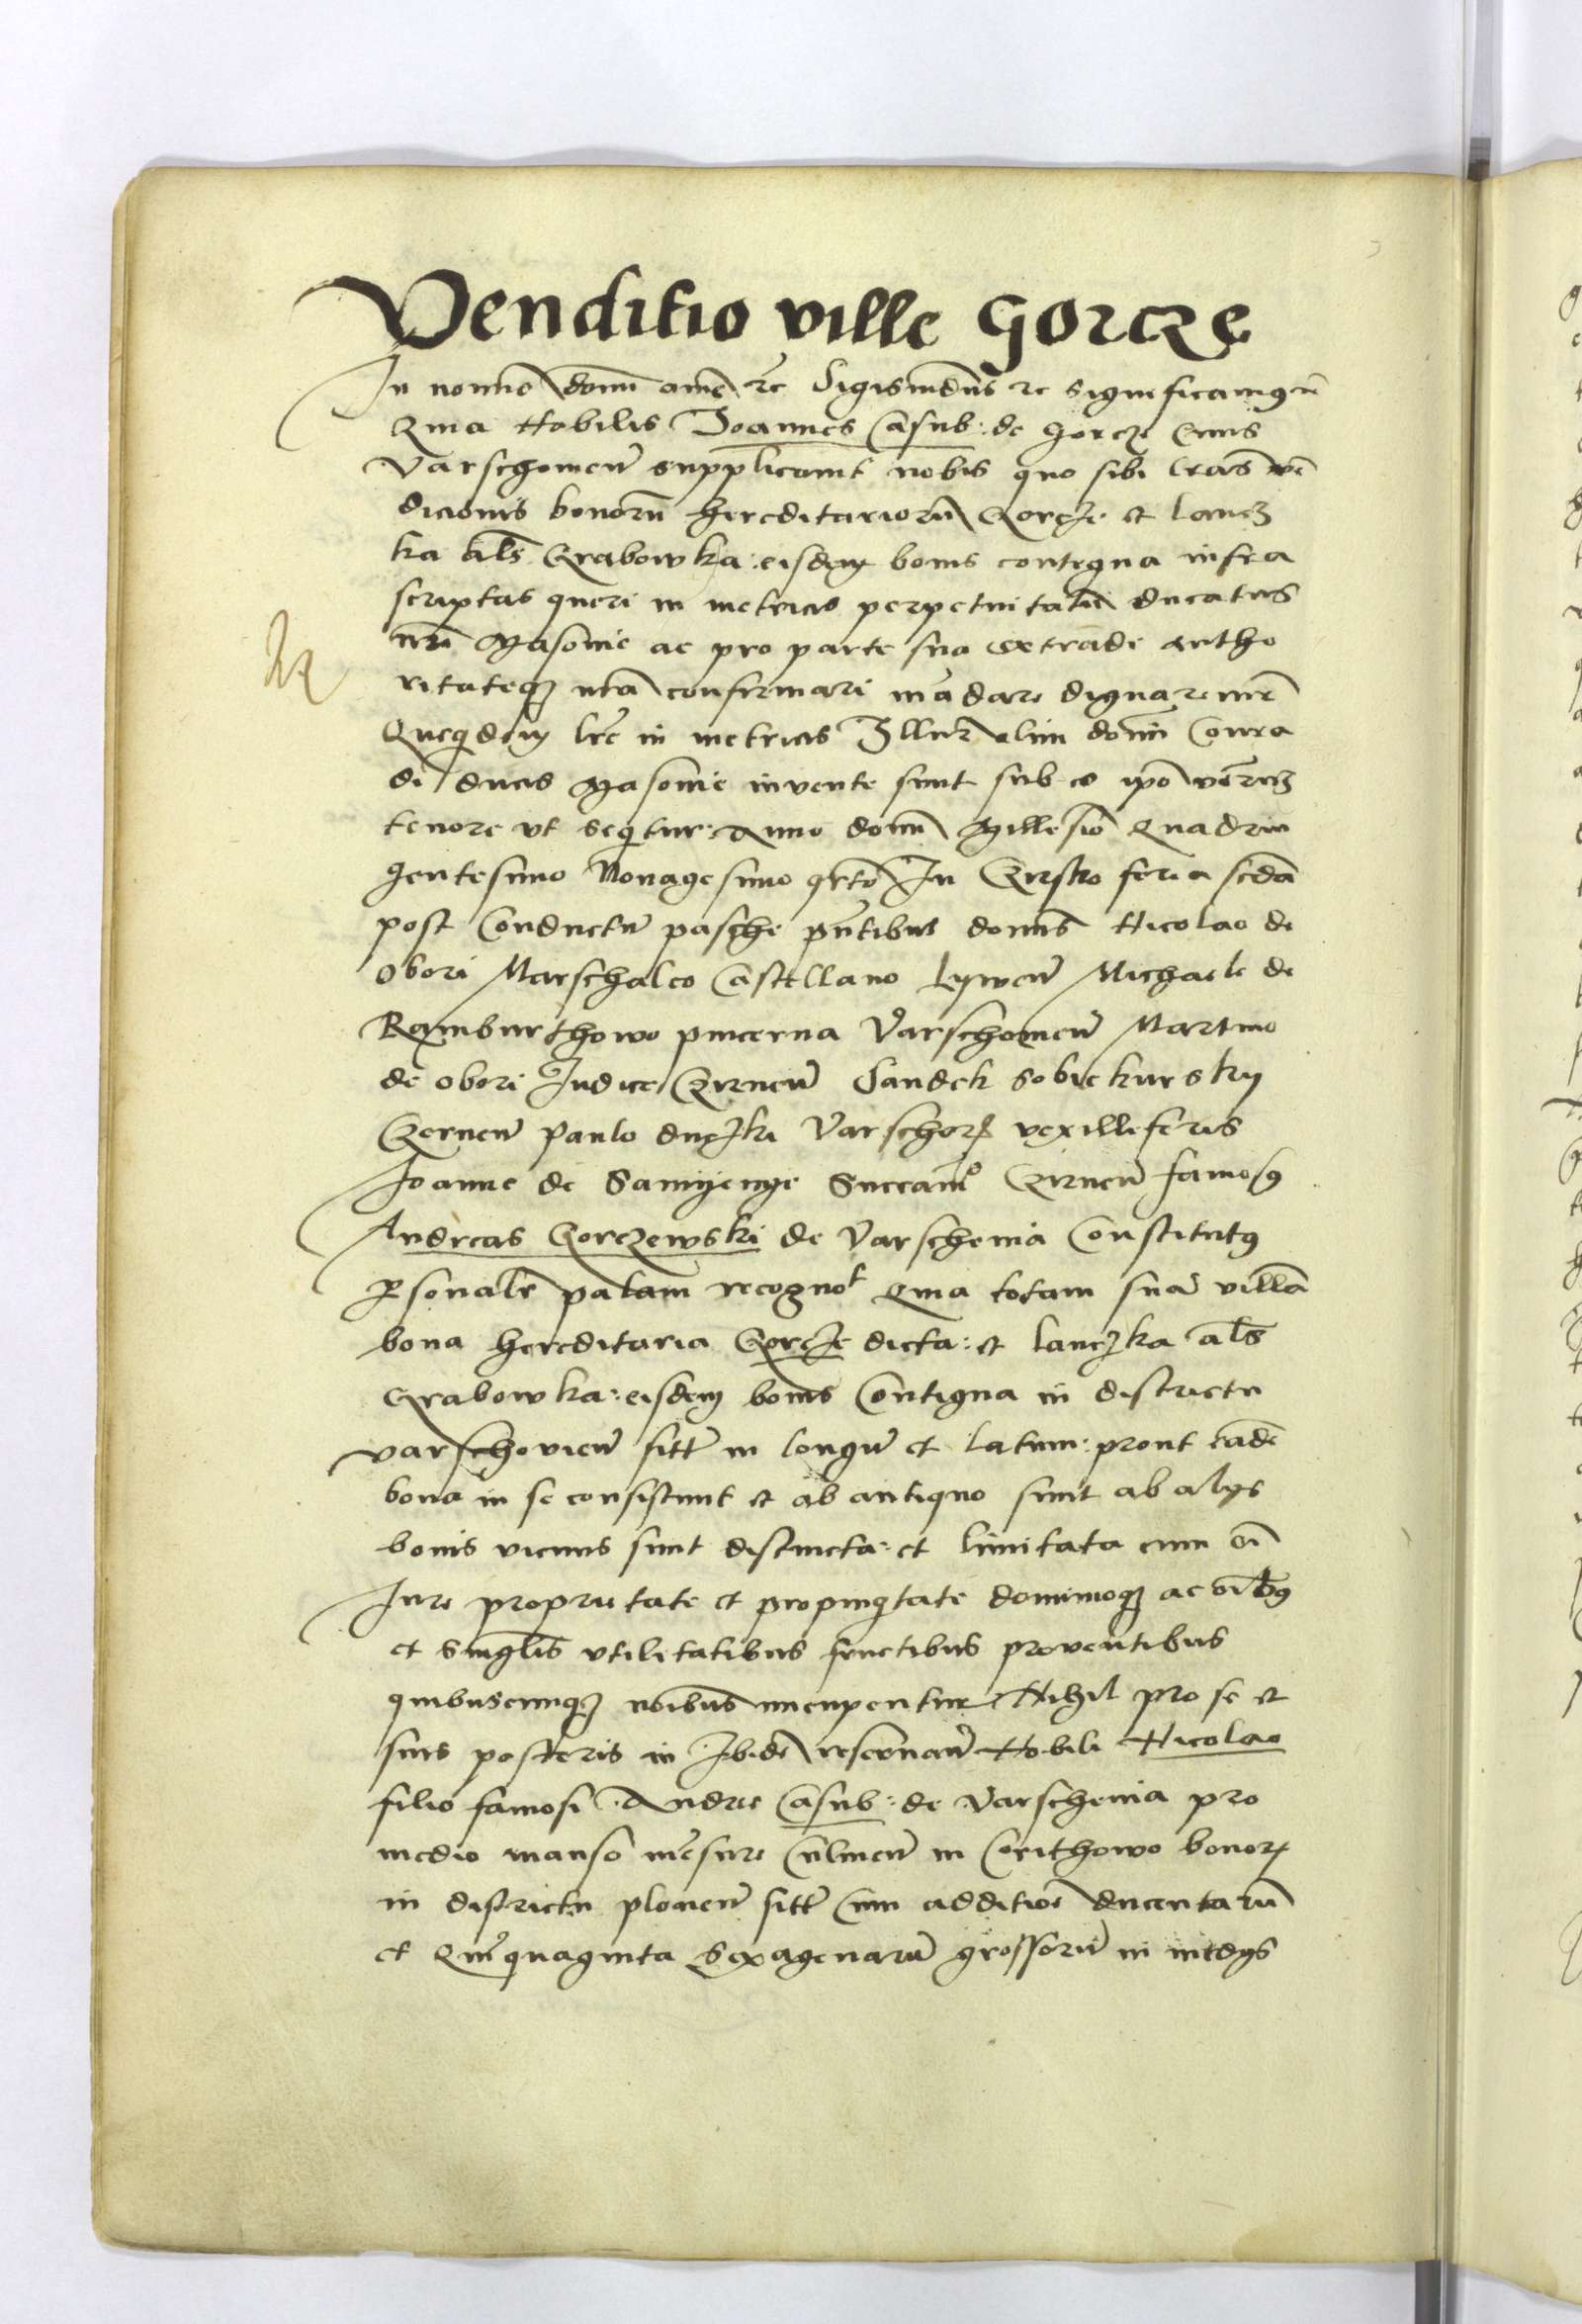 Venditio ville Gorcze
In nomine domini amē rc Sigismūdus rc significamus rc
Quia Nobilis Joannes Casub: de Gorcze Civis
Varschovien̄ supplicavit nobis quo sibi lr̄as ven
dicionis bonorū hereditariorū Gorcze et lancz
ka als̄ Grabowka: eisdem bonis contigua infra
scriptas queri in metricis perpetuitatū ducatus
nr̄i Masovie ac pro parte sua extradi autho
ritateqȝ nr̄a confirmari mādare dignaremur
Queqdem lr̄e in metricis Illus̄ olim domī Conra
di ducis Masovie invente sunt sub eo ip̄o verborȝ
tenore ut seqitur: Anno domī Millesīo Quadrin
gentesimo Nonagesimo qrto In feria scdā
post Conductū pasche pn̄tibus domīs Nicolao de
Obori Marschalco Castellano Lywen̄ Michaele de
Ramburthowo pincerna Varschovien̄ Martino
de Obori Iudice Czirnen̄ Sandek Sobiekursky
Czernen̄ Paulo duczki Varschov̄ vexilliferis
Joanne de Succam̄o Czirnen̄ famosus
Andreas Gorczewski de Varschovia Constitutus
psonalr̄ palam recognot Quia totam suā villā
bona hereditaria Gorcze dicta: et lanczka als̄
Grabowka: eisdem bonis Contigua in districtu
varschovien̄ sitt̄ in longū et latum: prout eadē
bona in se consistunt et ab antiquo sunt ab alys
bonis vicinis sunt distincta: et limitata cum oī
Iure proprietate et propinqtate dominioqȝ ac oībus
et singlis utilitatibus fructibus proventibus
quibuscunqȝ noībus nuncupentur Nihil pro se et
suis posteris in Ibidē reservanc̄ Nobili Nicolao
filio famosi Andree Casub: de Varschovia pro
medio manso mēsure Culmen̄ in Corithowo bonorȝ
in districtu plonen̄ sitt̄ Cum additiōe ducentarū
et Quīquaginta Sexagenarū grossorū in medys